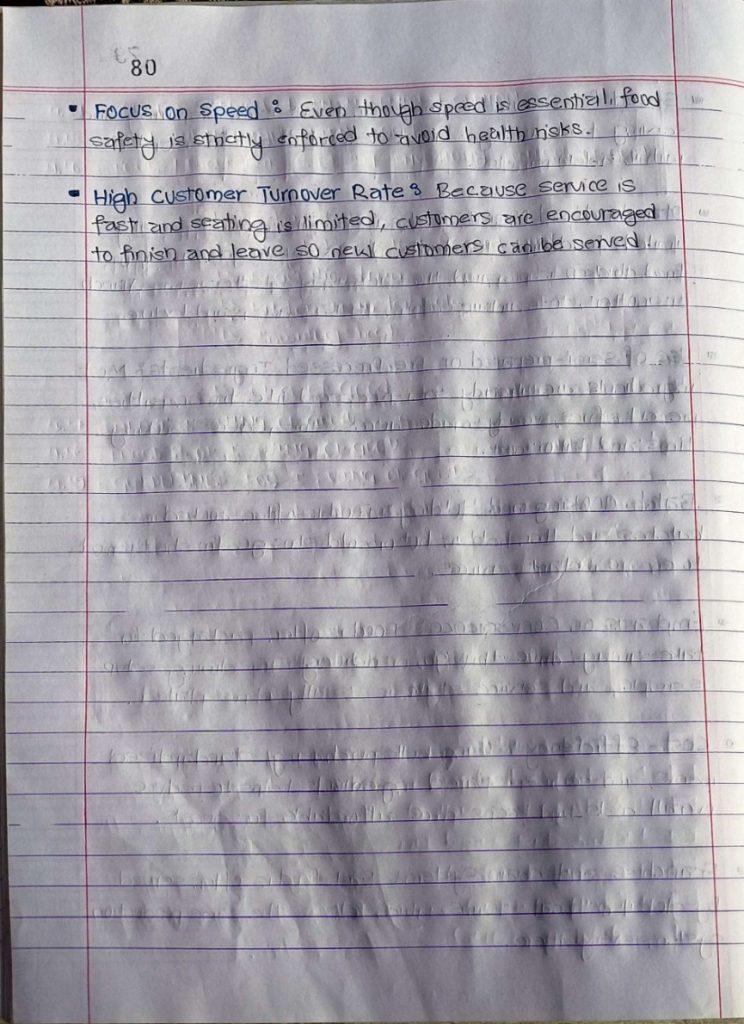 80
• Focus on Speed : Even though speed is essential, food
safety is strictly enforced to avoid health risks.
• High Customer Turnover Rate : Because service is
fast and seating is limited, customers are encouraged
to finish and leave so new customers can be served.